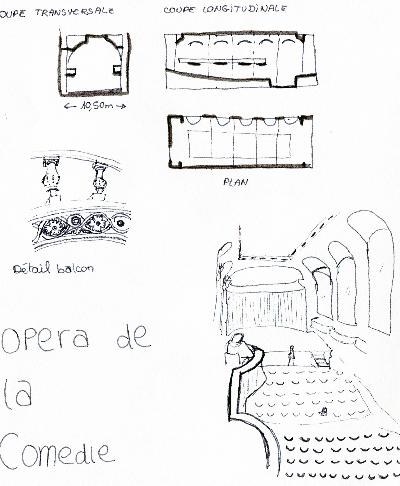 OUPE TRANSVERSALE
COUPE LONGITUDINALE
10,50m
PLAN
Détail balcon
OPERA de
la
Comedie